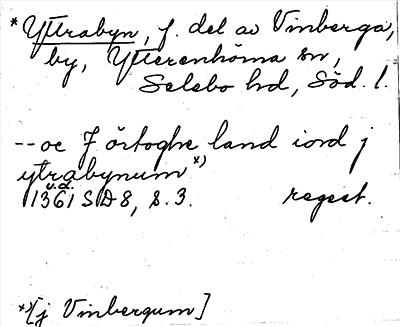 *Yttrabyn, f. del av Vinberga,
by, Ytterenhörna sn,
Selebo hd, Söd. l.
--oc 7 örtoghe land iord j
ytrabynum*)
u.d.
1361 SD 8, s. 3. regest.
*)[j Vinbergum]